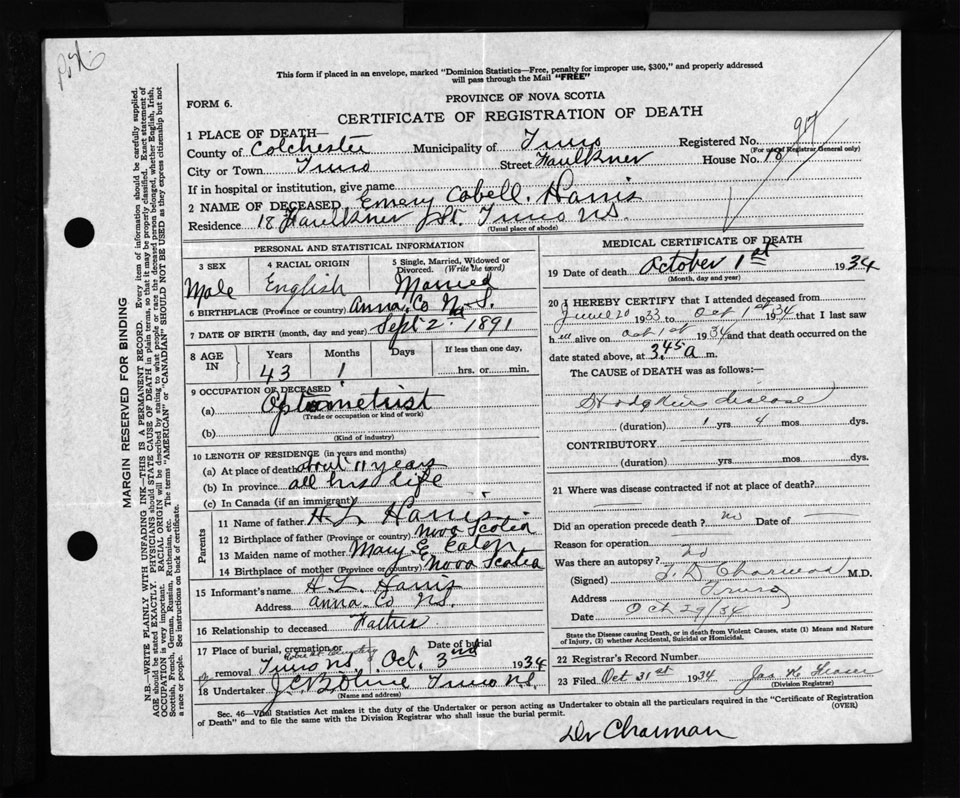 This form if placed in an envelope, marked "Dominion Statistics—Free, penalty for improper use, $300," and properly addressed
will pass through the Mail "FREE"
FORM 6.
PROVINCE OF NOVA SCOTIA
CERTIFICATE OF REGISTRATION OF DEATH
97
1 PLACE OF DEATH—
County of Colchester Municipality of Truro Registered No.
(For use of Registrar General only)
City or Town Truro Street Faulkner House No. 18
If in hospital or institution, give name
2 NAME OF DECEASED Emery Cobell Harris
Residence 18 Faulkner St. Truro N.S.
(Usual place of abode)
PERSONAL AND STATISTICAL INFORMATION
3 SEX 4 RACIAL ORIGIN 5 Single, Married, Widowed or
Divorced. (Write the word)
Male English Married
6 BIRTHPLACE (Province or country) Anna. Co N.S.
7 DATE OF BIRTH (month, day and year) Sept. 2 1891
8 AGE IN Years Months Days If less than one day,
43 1 hrs. or min.
9 OCCUPATION OF DECEASED
(a) Optometrist
(Trade or occupation or kind of work)
(b)
(Kind of industry)
10 LENGTH OF RESIDENCE (in years and months)
(a) At place of death about 11 years
(b) In province all his life
(c) In Canada (if an immigrant)
Parents
11 Name of father H. L. Harris
12 Birthplace of father (Province or country) Nova Scotia
13 Maiden name of mother Mary E. Eaton
14 Birthplace of mother (Province or country) Nova Scotia
15 Informant's name H L Harris
Address Anna. Co N.S.
16 Relationship to deceased Father
17 Place of burial, cremation or Date of burial
Cemetery
or removal Truro N.S. Oct. 3rd 1934
18 Undertaker Truro N.S.
(Name and address)
MEDICAL CERTIFICATE OF DEATH
19 Date of death October 1st 1934
(Month, day and year)
20 I HEREBY CERTIFY that I attended deceased from
June 20 1933 to Oct 1st 1934 that I last saw
h im alive on Oct 1st 1934 and that death occurred on the
date stated above, at 3.45 a m.
The CAUSE of DEATH was as follows:—
Hodgkins disease
(duration) 1 yrs. 4 mos. dys.
CONTRIBUTORY
(duration) yrs. mos. dys.
21 Where was disease contracted if not at place of death?
Did an operation precede death? no Date of
Reason for operation
Was there an autopsy? no
(Signed) M.D.
Address Truro
Date Oct 29/34
State the Disease causing Death, or in death from Violent Causes, state (1) Means and Nature
of Injury, (2) whether Accidental, Suicidal or Homicidal.
22 Registrar's Record Number
23 Filed Oct 31st 1934 Jas
(Division Registrar)
Sec. 46—Vital Statistics Act makes it the duty of the Undertaker or person acting as Undertaker to obtain all the particulars required in the "Certificate of Registration
of Death" and to file the same with the Division Registrar who shall issue the burial permit.
(OVER)
Dr Charman
MARGIN RESERVED FOR BINDING
N.B.—WRITE PLAINLY WITH UNFADING INK—THIS IS A PERMANENT RECORD. Every item of information should be carefully supplied.
AGE should be stated EXACTLY. PHYSICIANS should STATE CAUSE OF DEATH in plain terms, so that it may be properly classified. Exact statement of
OCCUPATION is very important. RACIAL ORIGIN will be described by stating to what people or race the deceased person belonged, whether English, Irish,
Scottish, French, German, Russian, Ruthenian, etc. The terms "AMERICAN" or "CANADIAN" SHOULD NOT BE USED as they express citizenship but not
a race or people. See instructions on back of certificate.